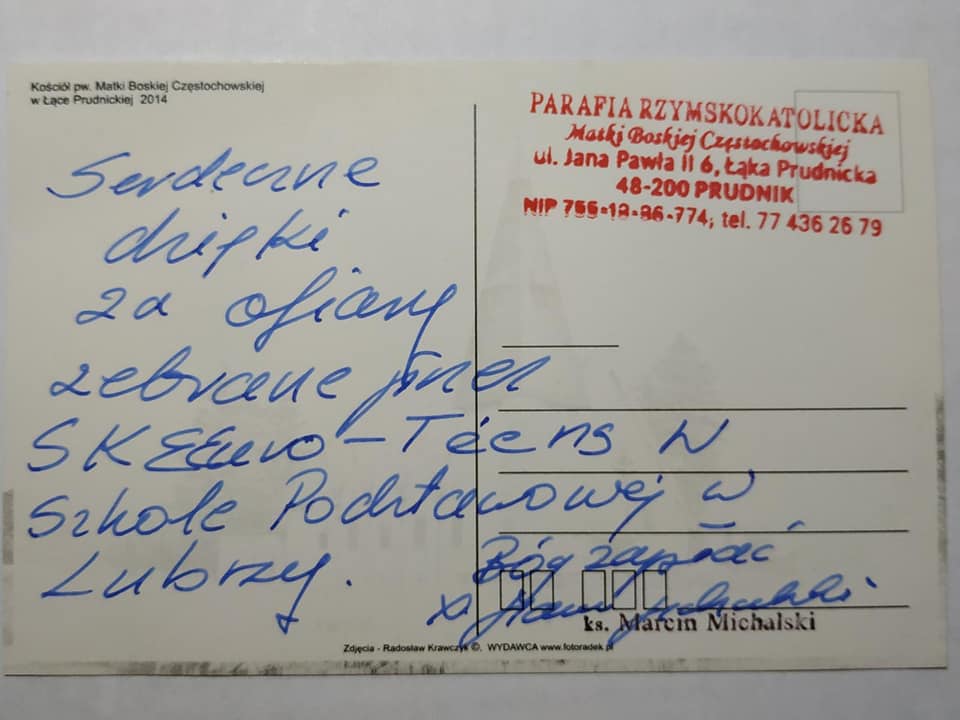 Kościół pw. Matki Boskiej Częstochowskiej
w Łące Prudnickiej 2014
PARAFIA RZYMSKOKATOLICKA
Matki Boskiej Częstochowskiej
ul. Jana Pawła II 6, Łąka Prudnicka
48-200 PRUDNIK
NIP 755-18-86-774; tel. 77 436 26 79
Serdeczne
dzięki
za ofiary
zebrane przez
SKEEuro-Teens w
Szkole Podstawowej w
Lubrzy.
Bóg zapłać
x
ks. Marcin Michalski
Zdjęcia - Radosław Krawczyk ©, WYDAWCA www.fotoradek.pl